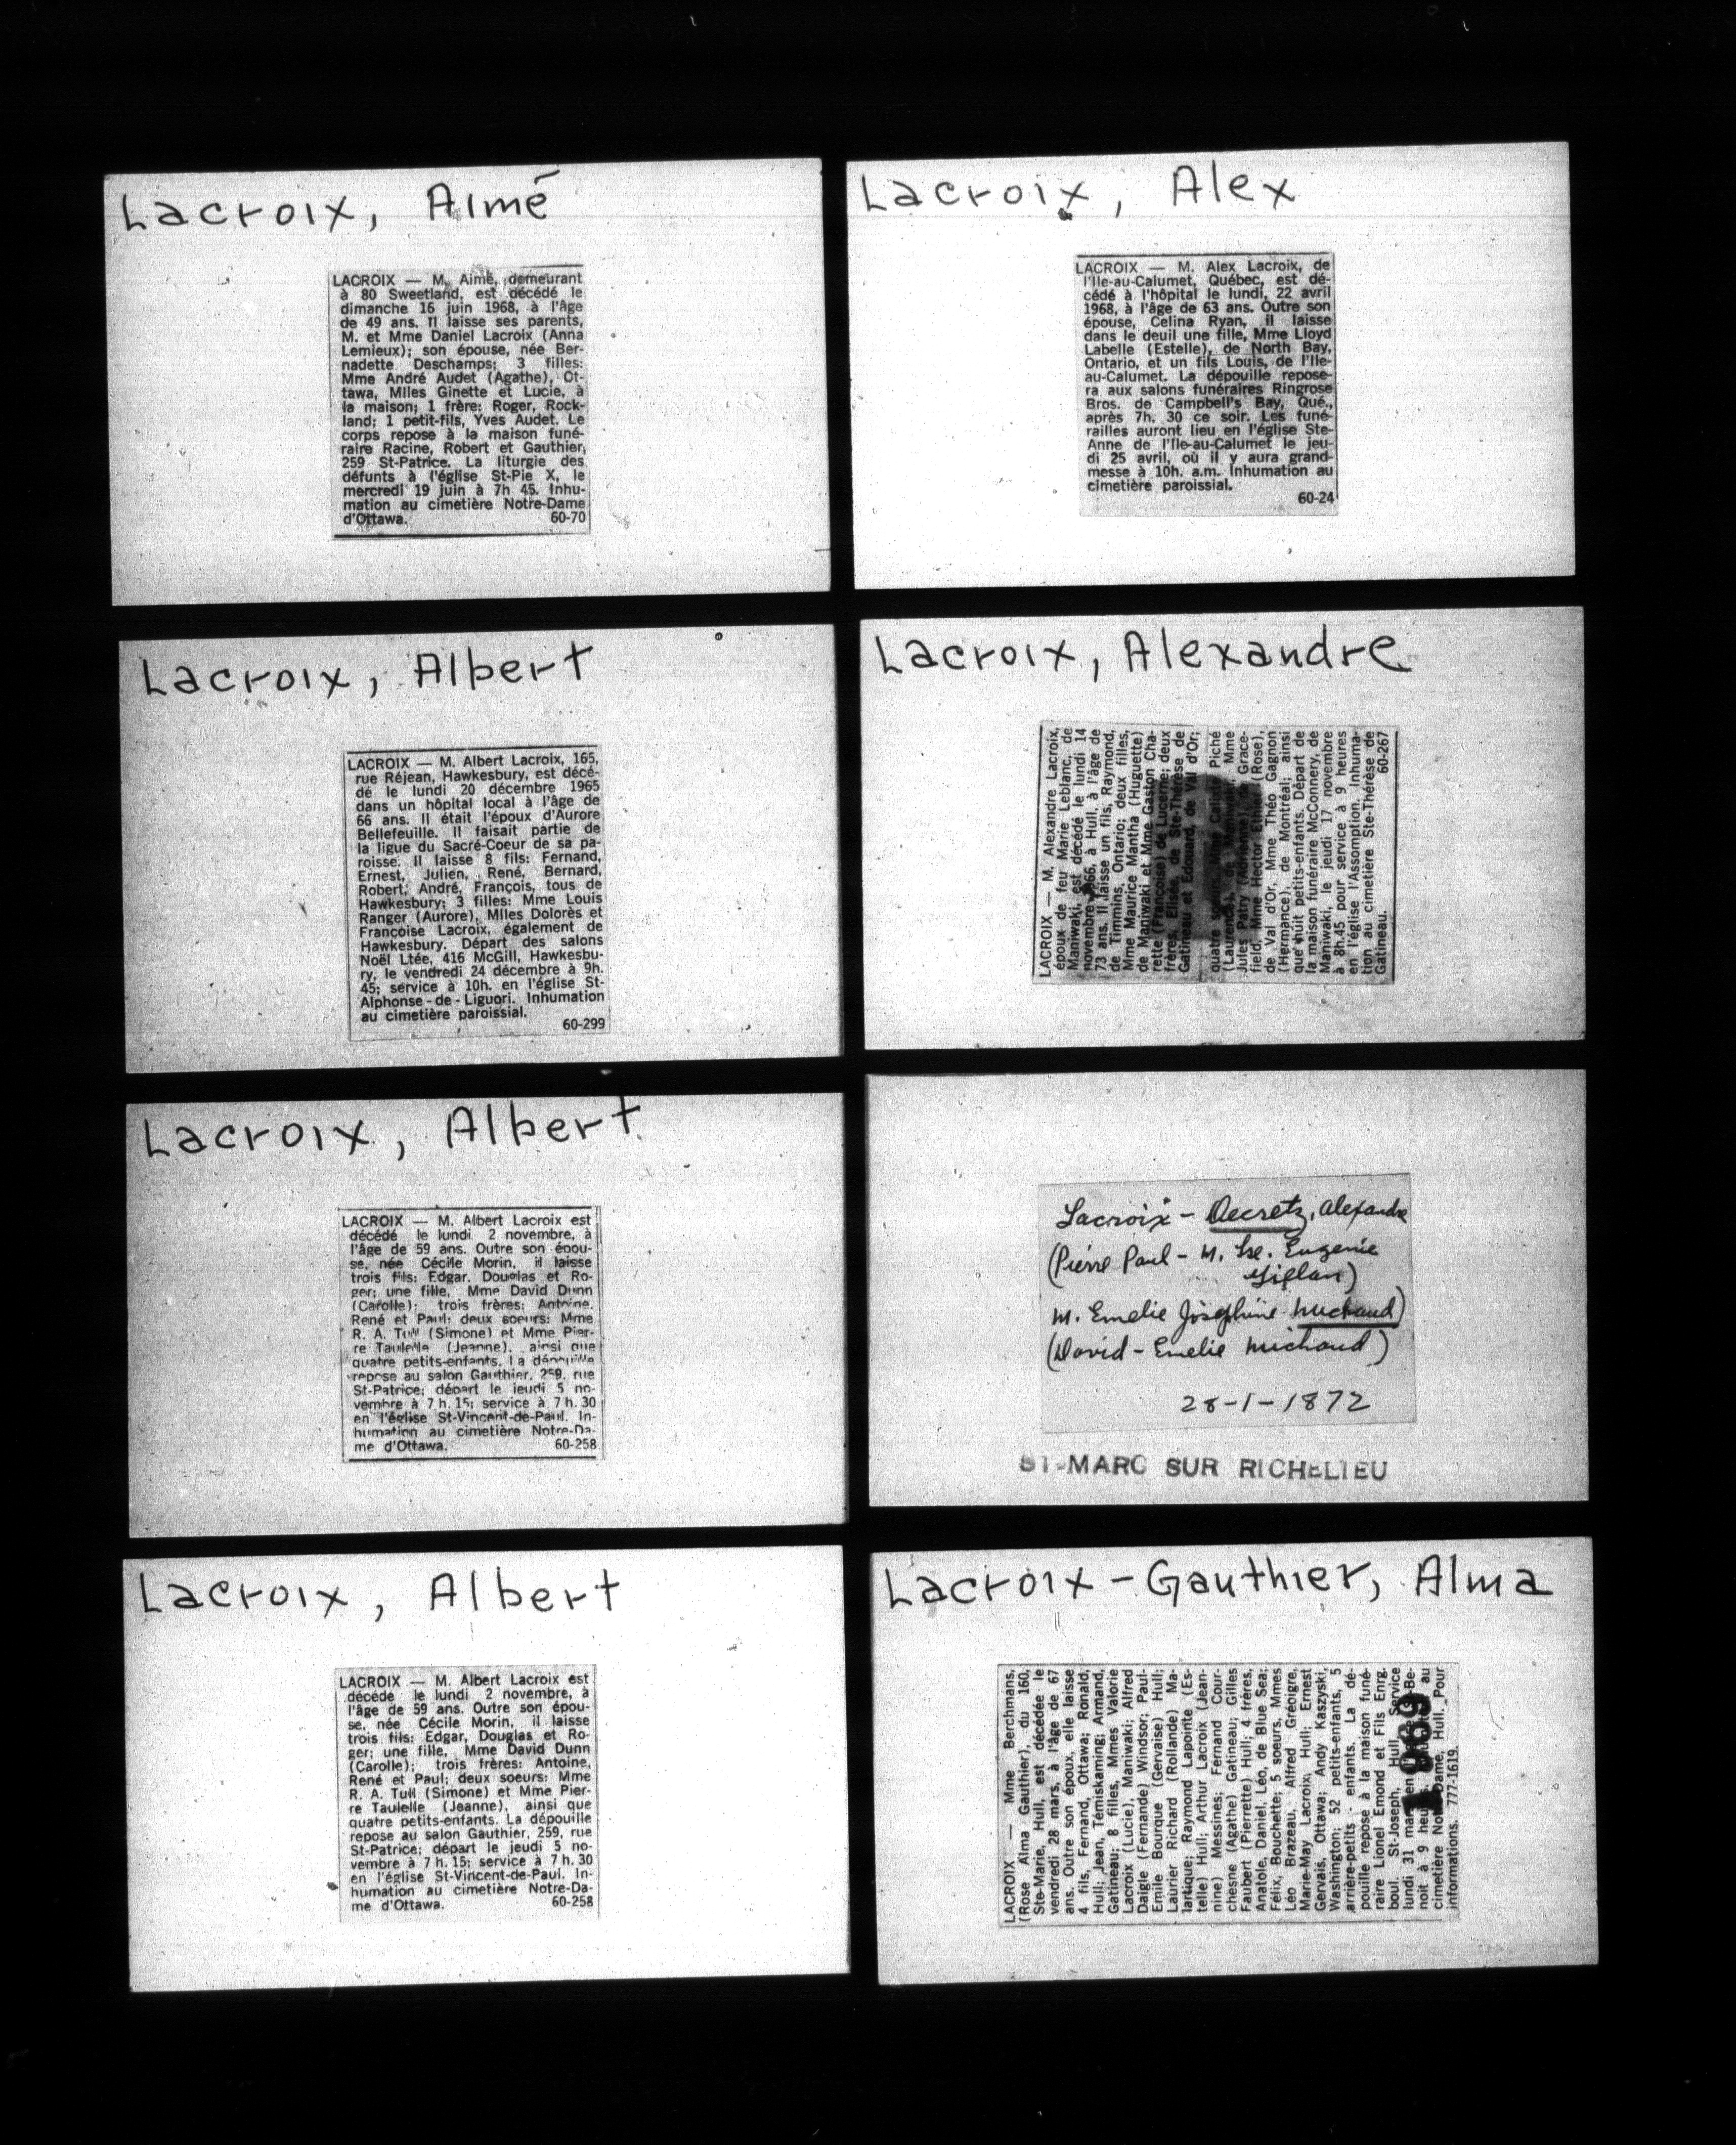 Lacroix, Aimé
LACROIX — M. Aimé, demeurant
à 80 Sweetland, est décédé le
dimanche 16 juin 1968, à l'âge
de 49 ans. Il laisse ses parents,
M. et Mme Daniel Lacroix (Anna
Lemieux); son épouse, née Ber-
nadette Deschamps; 3 filles:
Mme André Audet (Agathe), Ot-
tawa, Mlles Ginette et Lucie, à
la maison; 1 frère: Roger, Rock-
land; 1 petit-fils, Yves Audet. Le
corps repose à la maison funé-
raire Racine, Robert et Gauthier,
259 St-Patrice. La liturgie des
défunts à l'église St-Pie X, le
mercredi 19 juin à 7h 45. Inhu-
mation au cimetière Notre-Dame
d'Ottawa. 60-70
Lacroix, Albert
LACROIX — M. Albert Lacroix, 165,
rue Réjean, Hawkesbury, est décé-
dé le lundi 20 décembre 1965
dans un hôpital local à l'âge de
66 ans. Il était l'époux d'Aurore
Bellefeuille. Il faisait partie de
la ligue du Sacré-Coeur de sa pa-
roisse. Il laisse 8 fils: Fernand,
Ernest, Julien, René, Bernard,
Robert, André, François, tous de
Hawkesbury; 3 filles: Mme Louis
Ranger (Aurore), Mlles Dolorès et
Françoise Lacroix, également de
Hawkesbury. Départ des salons
Noël Ltée, 416 McGill, Hawkesbu-
ry, le vendredi 24 décembre à 9h.
45; service à 10h. en l'église St-
Alphonse-de-Liguori. Inhumation
au cimetière paroissial.
60-299
Lacroix, Albert
LACROIX — M. Albert Lacroix est
décédé le lundi 2 novembre, à
l'âge de 59 ans. Outre son épou-
se, née Cécile Morin, il laisse
trois fils: Edgar, Douglas et Ro-
ger; une fille, Mme David Dunn
(Carolle); trois frères: Antoine,
René et Paul; deux soeurs: Mme
R. A. Tull (Simone) et Mme Pier-
re Taulelle (Jeanne), ainsi que
quatre petits-enfants. La dépouille
repose au salon Gauthier, 259, rue
St-Patrice; départ le jeudi 5 no-
vembre à 7 h. 15; service à 7 h. 30
en l'église St-Vincent-de-Paul. In-
humation au cimetière Notre-Da-
me d'Ottawa. 60-258
Lacroix, Albert
LACROIX — M. Albert Lacroix est
décédé le lundi 2 novembre, à
l'âge de 59 ans. Outre son épou-
se, née Cécile Morin, il laisse
trois fils: Edgar, Douglas et Ro-
ger; une fille, Mme David Dunn
(Carolle); trois frères: Antoine,
René et Paul; deux soeurs: Mme
R. A. Tull (Simone) et Mme Pier-
re Taulelle (Jeanne), ainsi que
quatre petits-enfants. La dépouille
repose au salon Gauthier, 259, rue
St-Patrice; départ le jeudi 5 no-
vembre à 7 h. 15; service à 7 h. 30
en l'église St-Vincent-de-Paul. In-
humation au cimetière Notre-Da-
me d'Ottawa. 60-258
Lacroix, Alex
LACROIX — M. Alex Lacroix, de
l'Ile-au-Calumet, Québec, est dé-
cédé à l'hôpital le lundi, 22 avril
1968, à l'âge de 63 ans. Outre son
épouse, Celina Ryan, il laisse
dans le deuil une fille, Mme Lloyd
Labelle (Estelle), de North Bay,
Ontario, et un fils Louis, de l'Ile-
au-Calumet. La dépouille repose-
ra aux salons funéraires Ringrose
Bros. de Campbell's Bay, Qué.,
après 7h. 30 ce soir. Les funé-
railles auront lieu en l'église Ste-
Anne de l'Ile-au-Calumet le jeu-
di 25 avril, où il y aura grand-
messe à 10h. a.m. Inhumation au
cimetière paroissial.
60-24
Lacroix, Alexandre
LACROIX — M. Alexandre Lacroix,
époux de feu Marie Leblanc, de
Maniwaki, est décédé le lundi 14
novembre 1966, à Hull, à l'âge de
73 ans. Il laisse un fils, Raymond,
de Timmins, Ontario; deux filles,
Mme Maurice Mantha (Huguette)
de Maniwaki et Mme Gaston Cha-
rette (Françoise) de Lucerne; deux
frères, Elisée, de Ste-Thérèse de
Gatineau et Edouard, de Val d'Or;
quatre soeurs, Mme Calixte Piché
(Laurence), de Maniwaki, Mme
Jules Patry (Adrienne), de Grace-
field, Mme Hector Ethier (Rose),
de Val d'Or, Mme Théo Gagnon
(Hermance), de Montréal; ainsi
que huit petits-enfants. Départ de
la maison funéraire McConnery, de
Maniwaki, le jeudi 17 novembre
à 8h.45 pour service à 9 heures
en l'église l'Assomption. Inhuma-
tion au cimetière Ste-Thérèse de
Gatineau. 60-267
Lacroix - Decretz, Alexandre
(Pierre Paul - M. Lse. Eugenie
Giflan)
M. Emelie Josephine Michaud)
(David - Emelie Michaud)
28-1-1872
ST-MARC SUR RICHELIEU
Lacroix-Gauthier, Alma
LACROIX — Mme Berchmans,
(Rose Alma Gauthier), du 160,
Ste-Marie, Hull, est décédée le
vendredi 28 mars, à l'âge de 67
ans. Outre son époux, elle laisse
4 fils, Fernand, Ottawa; Ronald,
Hull; Jean, Témiskaming; Armand,
Gatineau; 8 filles, Mmes Valorie
Lacroix (Lucie), Maniwaki; Alfred
Daigle (Fernande) Windsor; Paul-
Emile Bourque (Gervaise) Hull;
Laurier Richard (Rollande) Ma-
lartique; Raymond Lapointe (Es-
telle) Hull; Arthur Lacroix (Jean-
nine) Messines; Fernand Cour-
chesne (Agathe) Gatineau; Gilles
Faubert (Pierrette) Hull; 4 frères,
Anatole, Daniel, Léo, de Blue Sea;
Félix, Bouchette; 5 soeurs, Mmes
Léo Brazeau, Alfred Grégoire,
Marie-May Lacroix, Hull; Ernest
Gervais, Ottawa; Andy Kaszyski,
Washington; 52 petits-enfants, 5
arrière-petits-enfants. La dé-
pouille repose à la maison funé-
raire Lionel Emond et Fils Enrg.
boul. St-Joseph, Hull. Service
lundi 31 mars en Be-
noit à 9 heures. au
cimetière Notre-Dame, Hull. Pour
informations. 777-1619.
1969